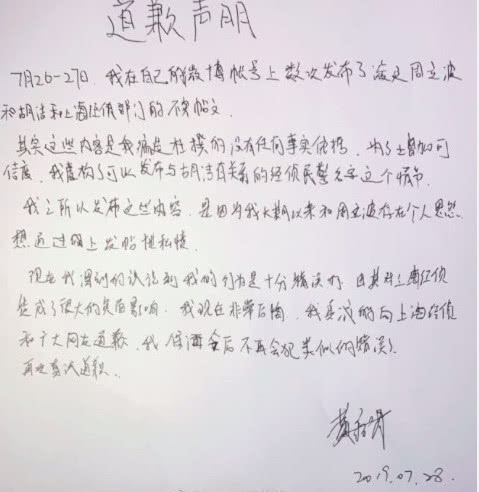 道歉声明
7月26-27日，我在自己的微博帐号上数次发布了涉及周立波
和胡洁和上海经侦部门的不实帖文
其实这些内容是我编造杜撰的没有任何事实依据，为了增加可
信度，我虚构了可以发布与胡洁有关系的经侦民警名字这个情节
我之所以发布这些内容，是因为我长期以来和周立波存在个人恩怨
想通过网上发帖泄私愤
现在我深刻的认识到我的行为是十分错误的，因其对上海经侦
造成了很大的负面影响，我现在非常后悔，我真诚的向上海经侦
和广大网友道歉，我保证今后不再会犯类似的错误
再次真诚道歉。
2019.07.28.